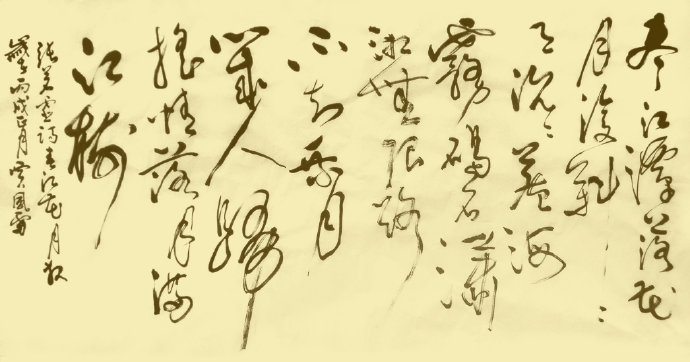 尽江潭落花
月復斜
沉沉藏海
霧碣石瀟
湘無限路
不知乘月
幾人歸
搖情落月滿
江樹
張若虛詩春江花月夜
歲丙戌正月